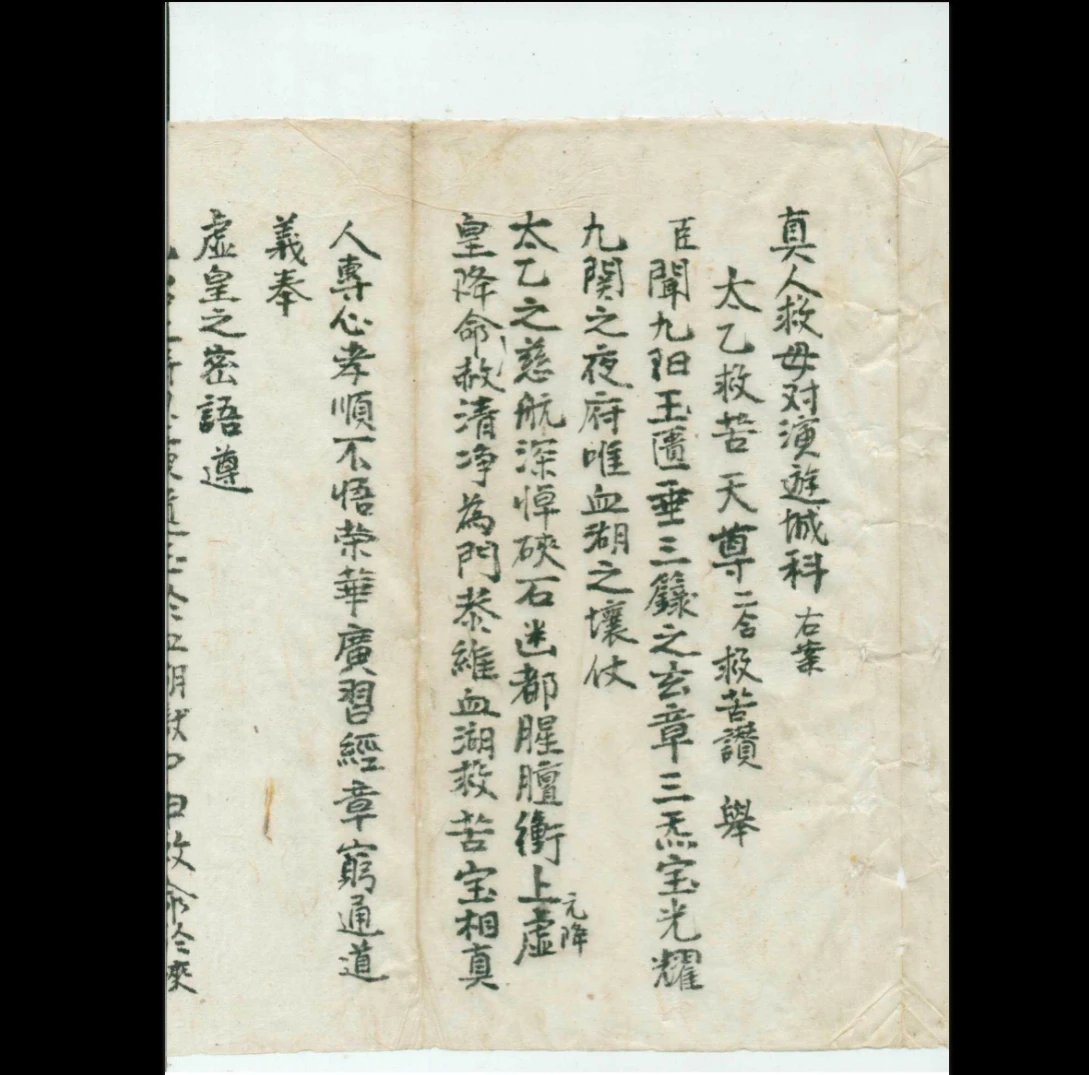 真人救母对演遊城科 右案
太乙救苦天尊 二合 救苦讚 舉
臣聞九阳玉匱垂三籙之玄章三炁宝光耀
九関之夜府唯血湖之壤仗
太乙之慈航深悼硤石迷都腥膻衝上虚 元降
皇降命赦清净為門恭維血湖救苦宝相真
人專心孝順不悟荣華廣習經章窮通道
義奉
虚皇之密語遵